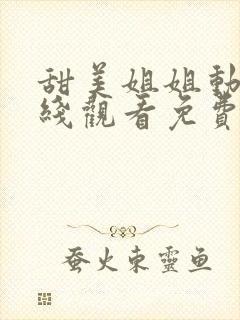 甜美姐姐動
綫觀看免費
蚕火東靈鱼